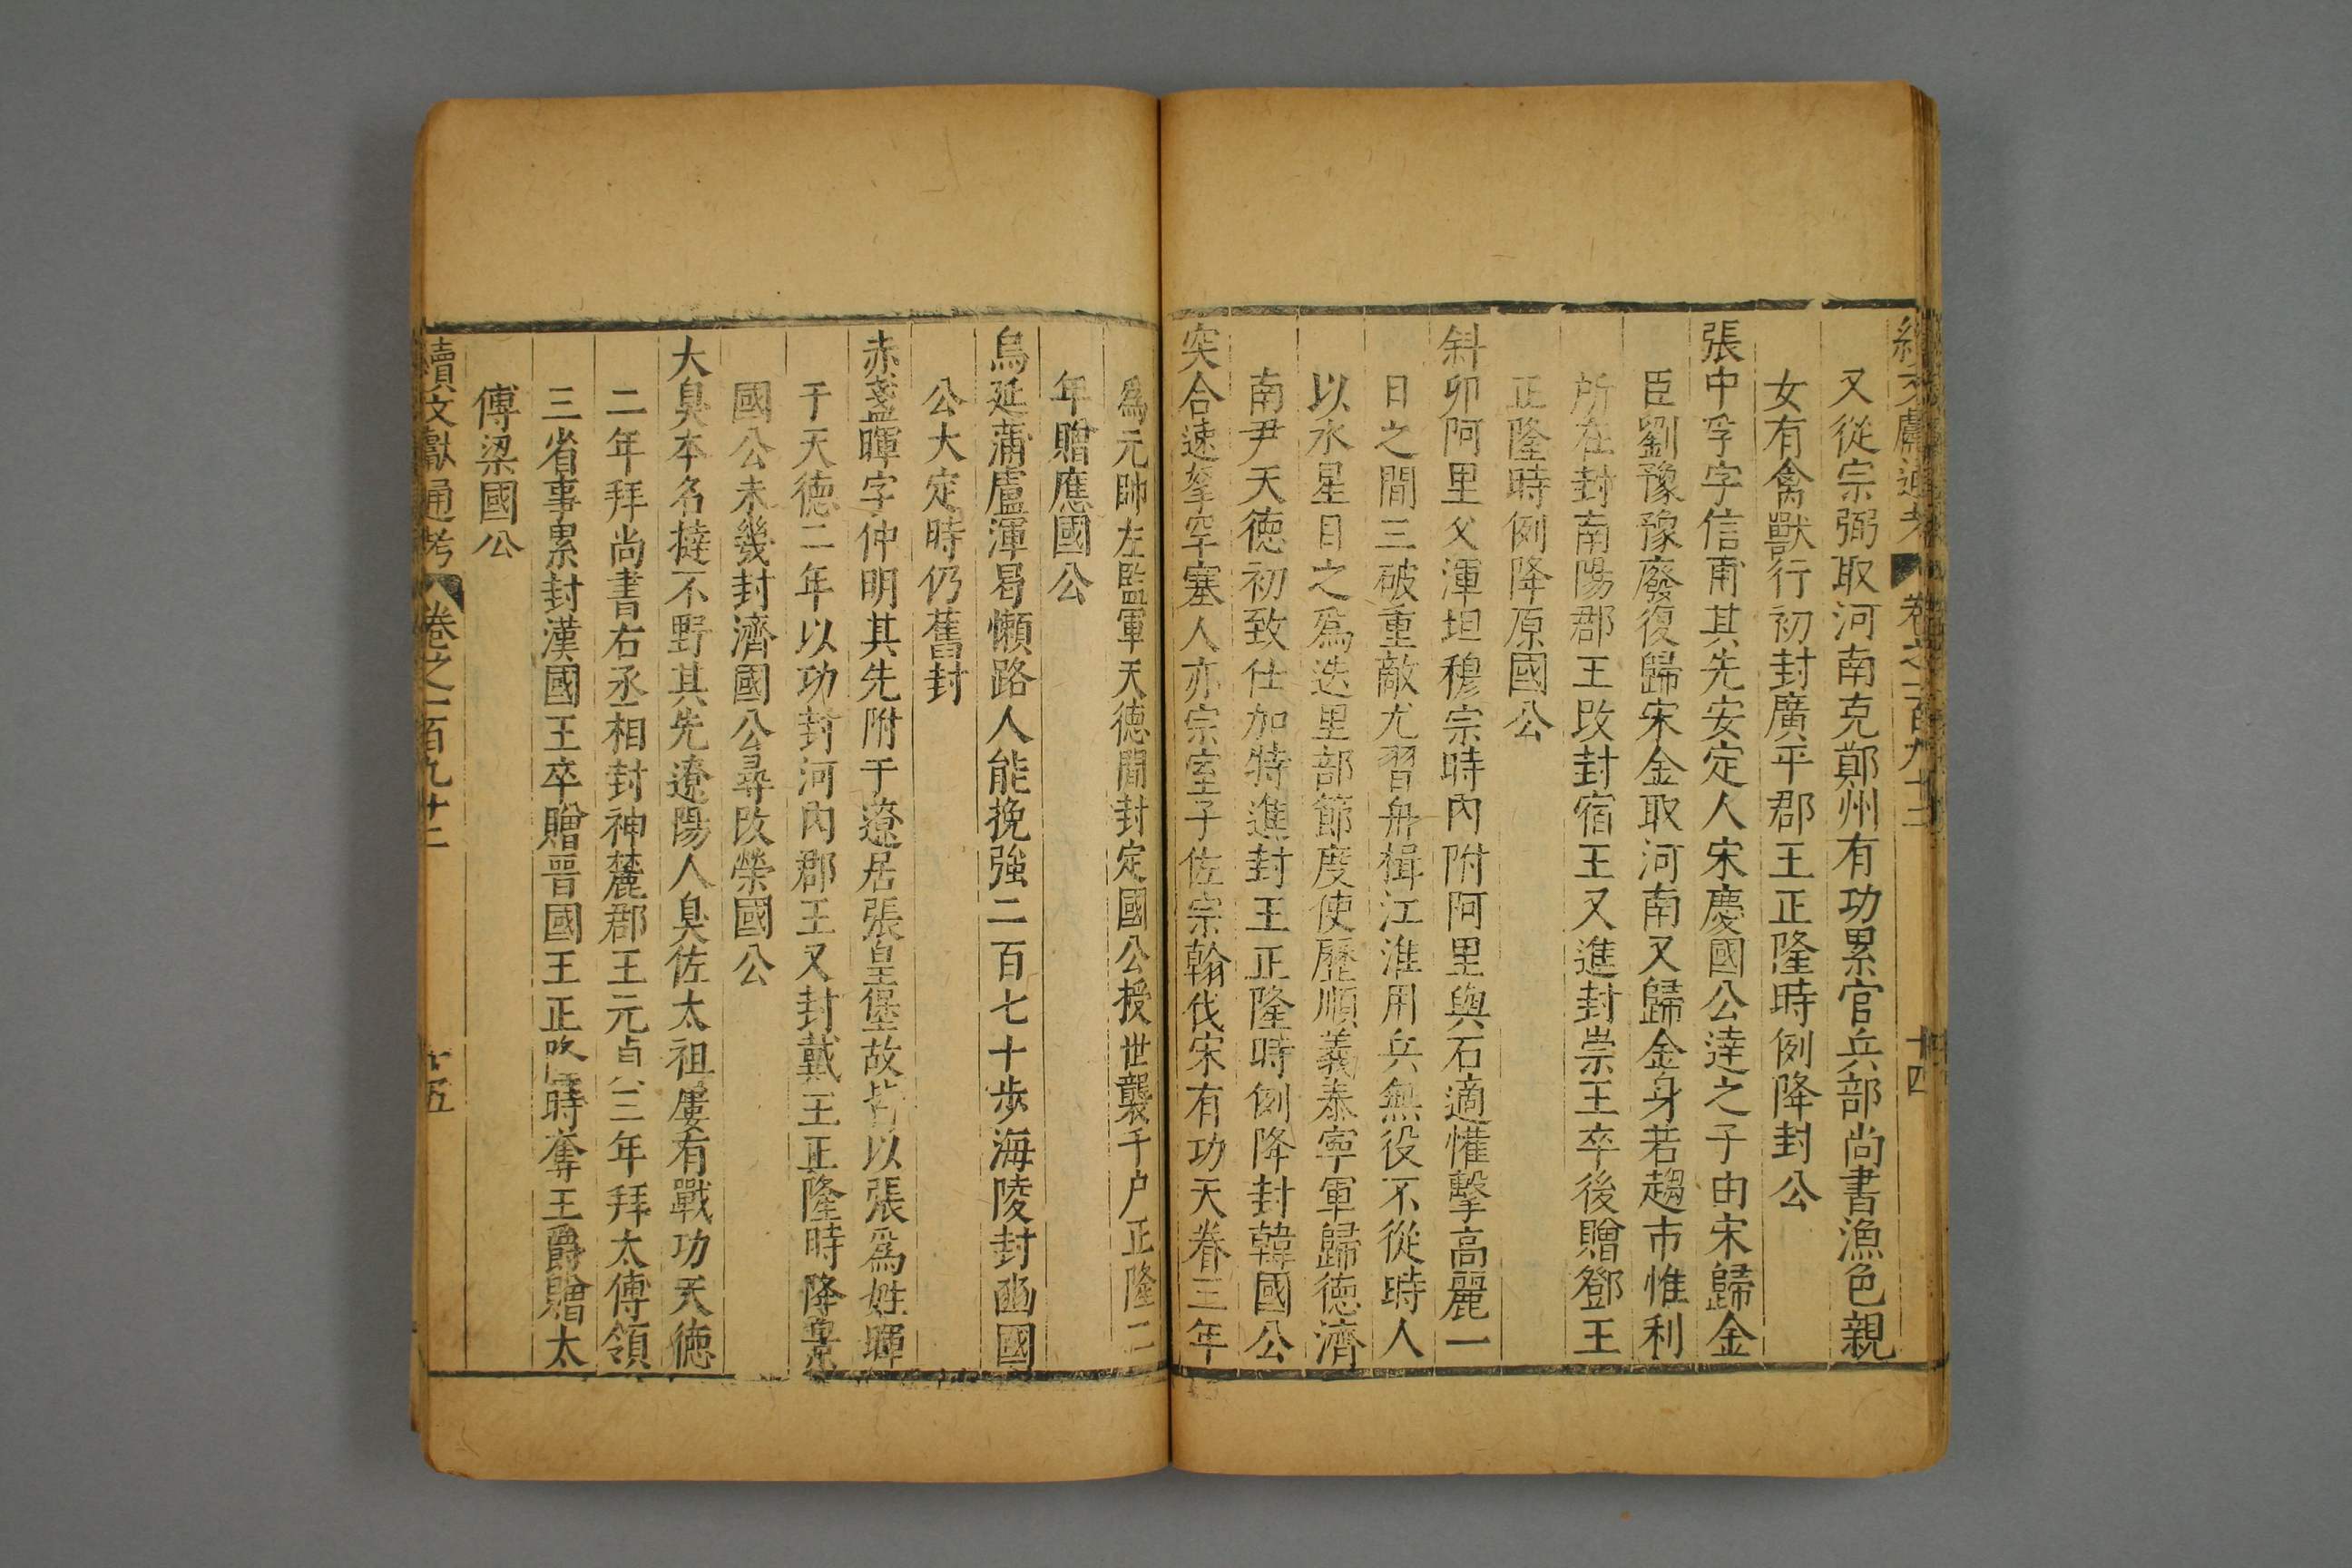 續文獻通考 卷之一百九十三 十四
又從宗弼取河南克鄭州有功累官兵部尚書漁色親
女有禽獸行初封廣平郡王正隆時例降封公
張中孚字信甫其先安定人宋慶國公達之子由宋歸金
臣劉豫豫廢復歸宋金取河南又歸金身若趨市惟利
所在封南陽郡王改封宿王又進封崇王卒後贈鄧王
正隆時例降原國公
斜卯阿里父渾坦穆宗時內附阿里與石適懽擊高麗一
日之間三破重敵尤習舟楫江淮用兵無役不從時人
以水星目之爲迭里部節度使歷順義泰寧軍歸德濟
南尹天德初致仕加特進封王正隆時例降封韓國公
突合速拏罕塞人亦宗室子佐宗翰伐宋有功天眷三年
爲元帥左監軍天德間封定國公授世襲千户正隆二
年贈應國公
烏延蒲盧渾曷懶路人能挽強二百七十步海陵封豳國
公大定時仍舊封
赤盞暉字仲明其先附于遼居張皇堡故皆以張爲姓暉
于天德二年以功封河內郡王又封戴王正隆時降景
國公未幾封濟國公尋改榮國公
大臭本名撻不野其先遼陽人臭佐太祖屢有戰功天德
二年拜尚書右丞相封神麓郡王元貞三年拜太傅領
三省事累封漢國王卒贈晋國王正隆時奪王爵贈太
傅梁國公
續文獻通考 卷之一百九十三 十五